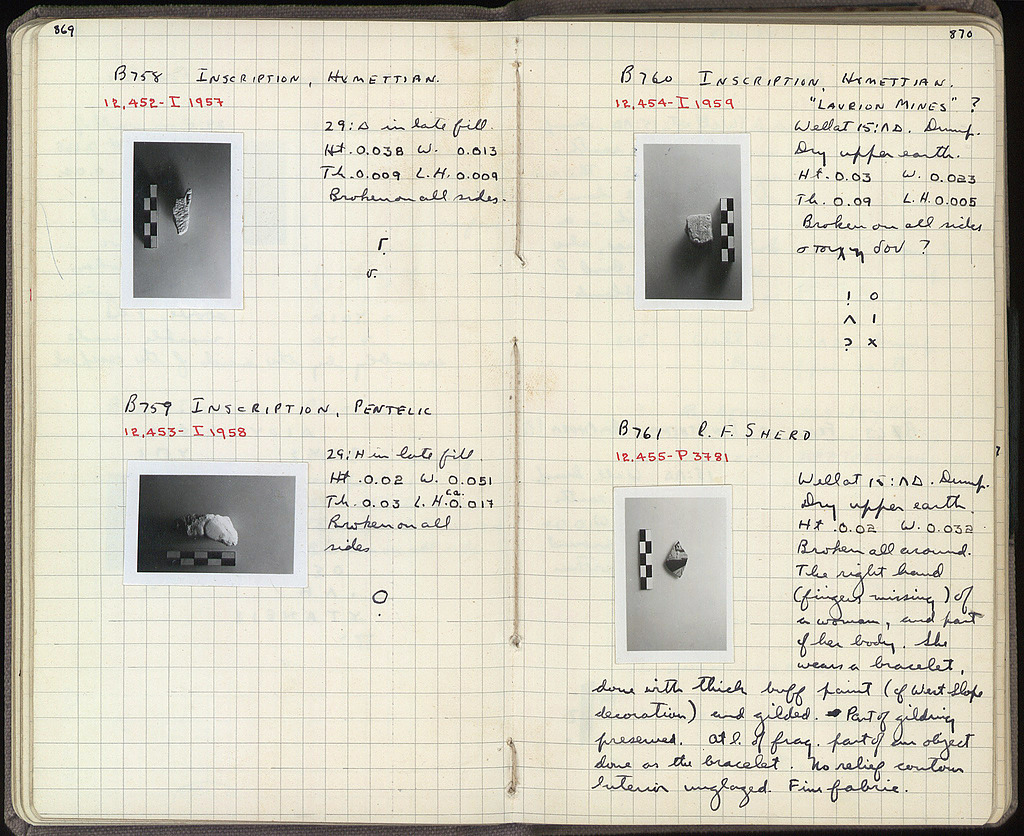 869
B758 INSCRIPTION, HYMETTIAN.
12,452-I 1957
29:Δ in late fill.
Ht. 0.038 W. 0.013
Th. 0.009 L.H. 0.009
Broken on all sides.
Γ
σ.
B759 INSCRIPTION, PENTELIC
12,453-I 1958
29:H in late fill.
Ht. 0.02 W. 0.051
Th. 0.03 L.H. ca. 0.017
Broken on all
sides
O
870
B760 INSCRIPTION, HYMETTIAN.
12,454-I 1959
"LAURION MINES" ?
Well at 15:ΛΔ. Dump.
Dry upper earth.
Ht. 0.03 W. 0.023
Th. 0.09 L.H. 0.005
Broken on all sides
?
! O
Λ I
? X
B761 R.F. SHERD
12,455-P 3781
Well at 15:ΛΔ. Dump.
Dry upper earth.
Ht. 0.02 W. 0.032
Broken all around.
The right hand
(fingers missing) of
a woman, and part
of her body. She
wears a bracelet,
done with thick buff paint (cf West Slope
decoration) and gilded. Part of gilding
preserved. At l. of frag. part of an object
done as the bracelet. No relief contour
Interior unglazed. Fine fabric.